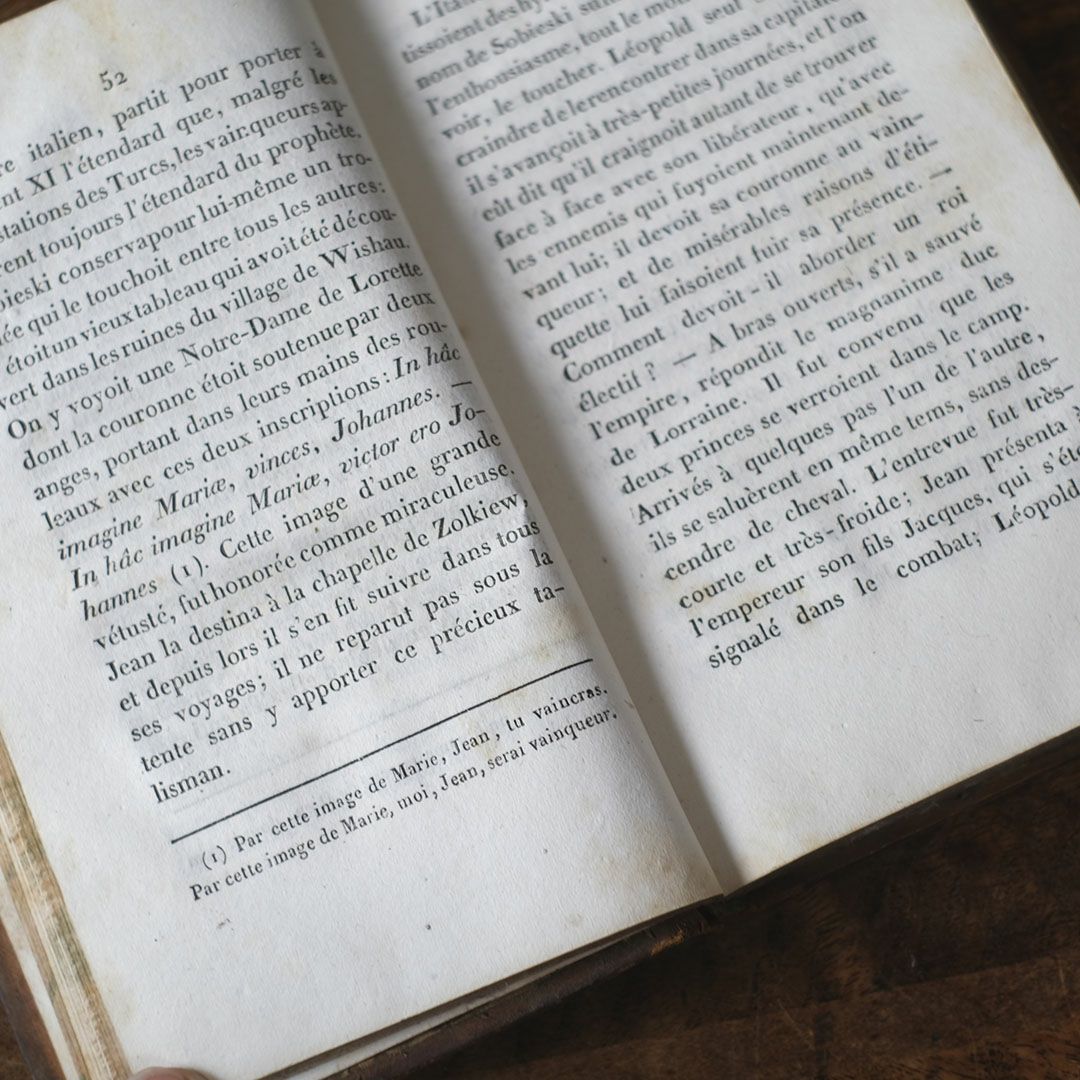 52
re italien, partit pour porter à
ent XI l'étendard que, malgré les
stations des Turcs, les vainqueurs ap-
rent toujours l'étendard du prophète.
bieski conserva pour lui-même un tro-
ée qui le touchoit entre tous les autres:
étoit un vieux tableau qui avoit été décou-
vert dans les ruines du village de Wishau.
On y voyoit une Notre-Dame de Lorette
dont la couronne étoit soutenue par deux
anges, portant dans leurs mains des rou-
leaux avec ces deux inscriptions: In hâc
imagine Mariæ, vinces, Johannes. —
In hâc imagine Mariæ, victor ero Jo-
hannes (1). Cette image d'une grande
vétusté, fut honorée comme miraculeuse.
Jean la destina à la chapelle de Zolkiew,
et depuis lors il s'en fit suivre dans tous
ses voyages; il ne reparut pas sous la
tente sans y apporter ce précieux ta-
lisman.
(1) Par cette image de Marie, Jean, tu vaincras.
Par cette image de Marie, moi, Jean, serai vainqueur.
L'Ital
tissoient des hy
nom de Sobieski
l'enthousiasme, tout le mo
voir, le toucher. Léopold seul
craindre de le rencontrer dans sa capitale
il s'avançoit à très-petites journées, et l'on
eût dit qu'il craignoit autant de se trouver
face à face avec son libérateur, qu'avec
les ennemis qui fuyoient maintenant de-
vant lui; il devoit sa couronne au vain-
queur; et de misérables raisons d'éti-
quette lui faisoient fuir sa présence. —
Comment devoit-il aborder un roi
électif? — A bras ouverts, s'il a sauvé
l'empire, répondit le magnanime duc
de Lorraine. Il fut convenu que les
deux princes se verroient dans le camp.
Arrivés à quelques pas l'un de l'autre,
ils se saluèrent en même tems, sans des-
cendre de cheval. L'entrevue fut très-
courte et très-froide; Jean présenta à
l'empereur son fils Jacques, qui s'éto
signalé dans le combat; Léopold